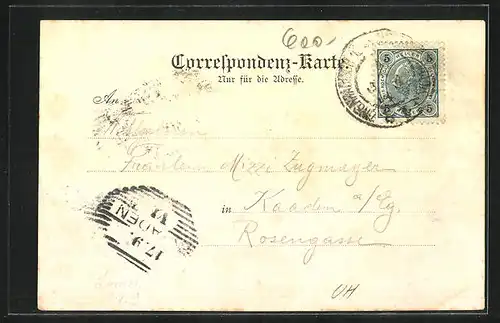 600.-
Correspondenz-Karte.
Nur für die Adresse.
5 5
5 5
An
Fräulein Mizzi Zugmayer
in Kaaden a/Eg.
Rosengasse
17.9
KAADEN
VH